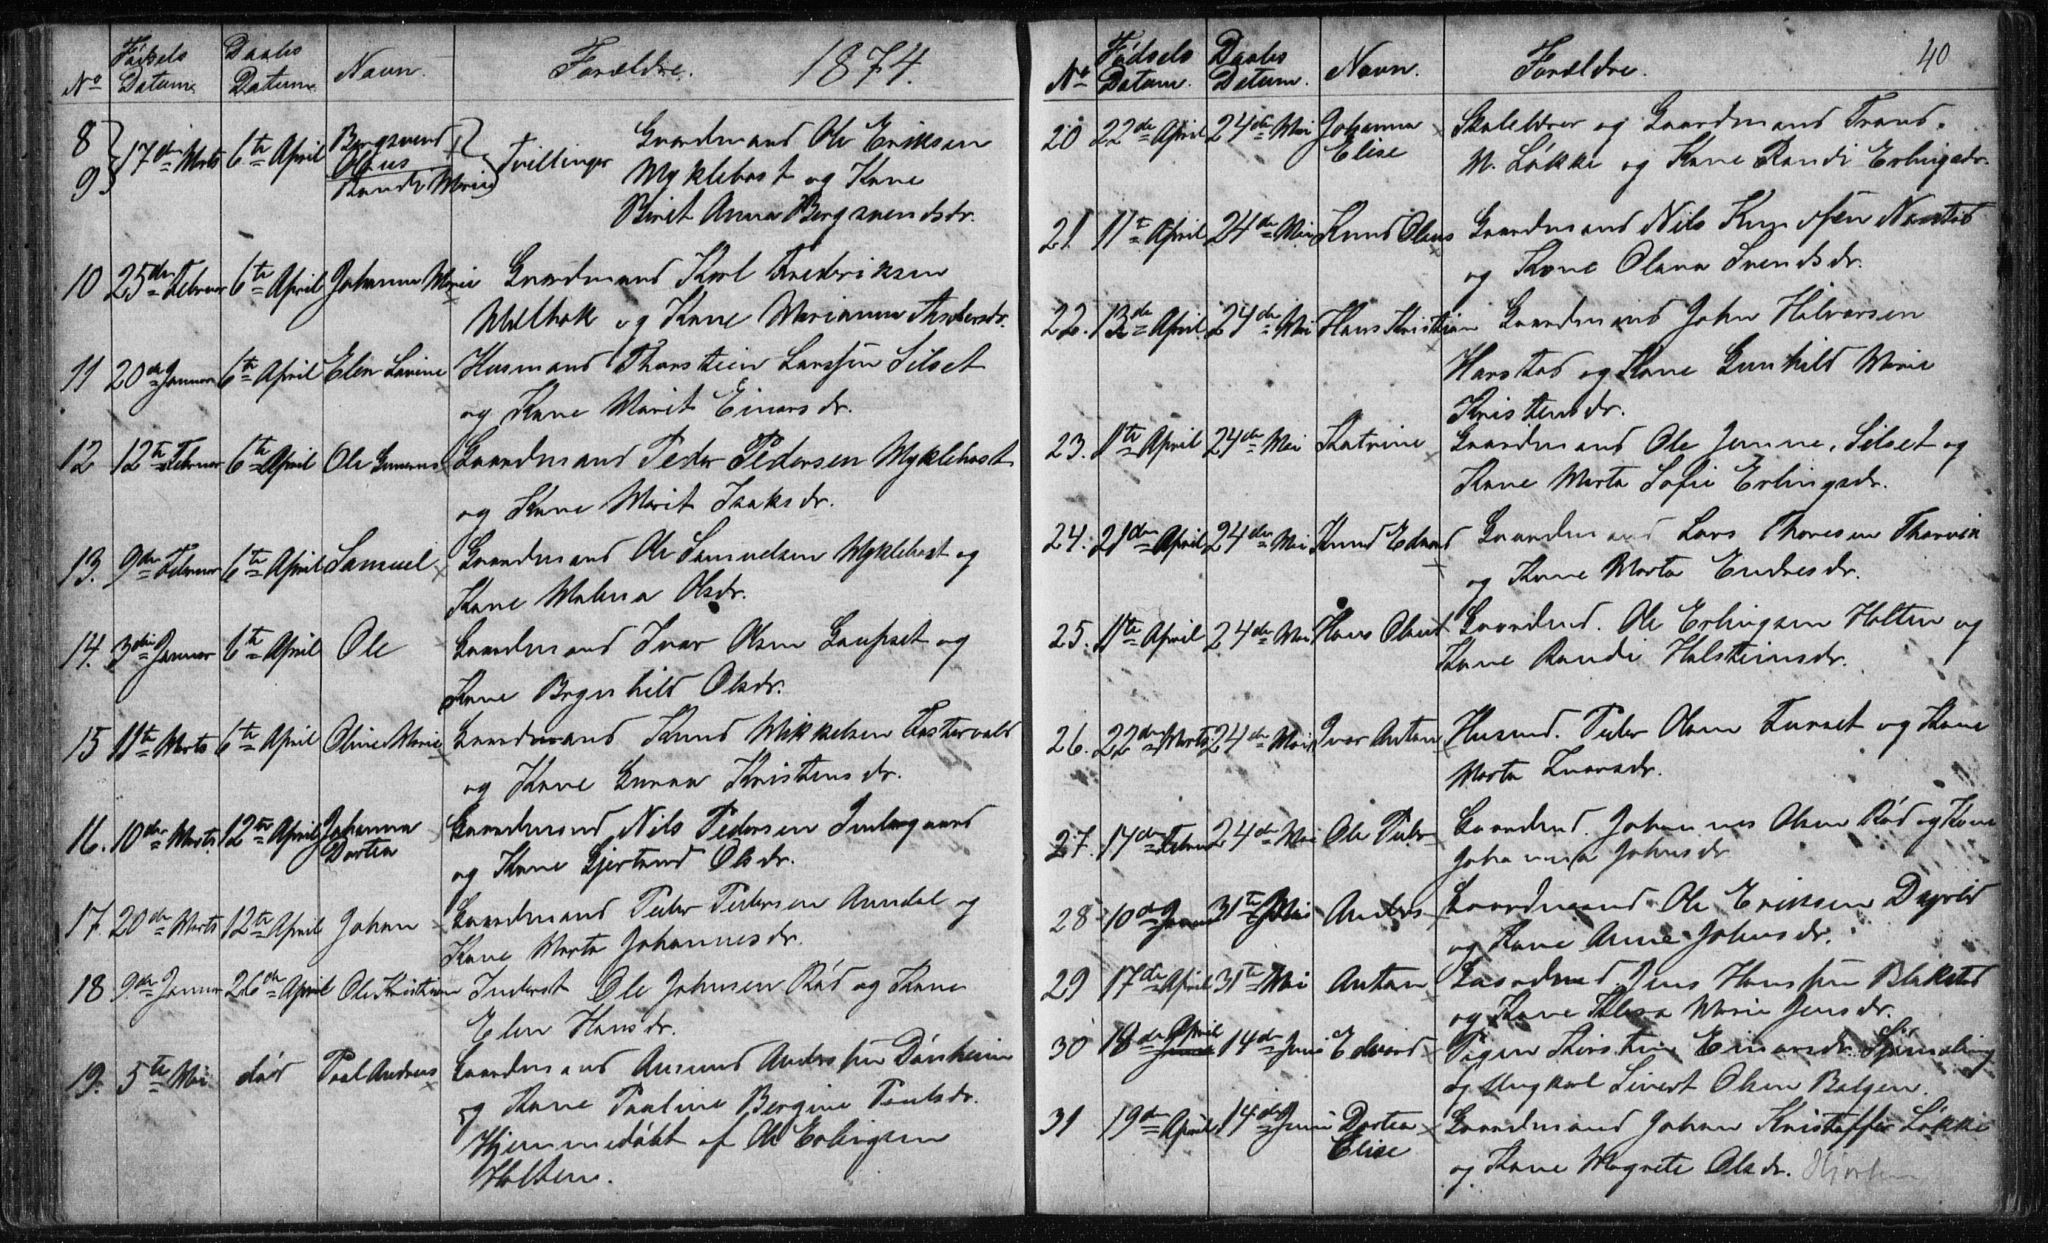 1874.
No Fødsels Datum. Daabs Datum. Navn. Forældre.
8 9 17de Marts 6te April Bergsvend Olaus Randi Marie Tvillinger Gaardmand Ole Eriksen
Myklebost og Kone
Birit Anna Bergsvendsdr.
10 25de Februar 6te April Johanna Marie Gaardmand Karl Frederiksen
og Kone Marianna
11 20de Januar 6te April Elen Lavine Husmand Thorstein Larssen Silset
og Kone Marit Einarsdr.
12 12te Februar 6te April Ole Gaardmand Peder Pedersen Myklebost
og Kone Marit Isaksdr.
13. 9de Februar 6te April Samuel Gaardmand Ole Samuelsen Myklebost og
Kone Malena Olsdr.
14. 3die Januar 6te April Ole Gaardmand Ivar Olsen Gaupset og
Kone Brynhild Olsdr.
15 11te Marts 6te April Oline Marie Gaardmand Knud Mikkelsen
og Kone Gunna Kristensdr.
16. 10de Marts 12te April Johanna Dortea Gaardmand Nils Pedersen
og Kone Gjertrud Olsdr.
17. 20de Marts 12te April Johan Gaardmand Peder Pedersen Aandal og
Kone Marta Johannesdr.
18 9de Januar 26de April Ole Kristian Inderst Ole Johnsen Rød og Kone
Elen Hansdr.
19. 5te Mai død Paal Andreas Gaardmand Amund Anderssen
og Kone Pauline Bergine Paulsdr.
Hjemmedøbt af Ole Erlingsen
Holten.
40
No Fødsels Datum. Daabs Datum. Navn. Forældre.
20 22de April 24de Mai Johanna Elise Skolelærer og Gaardmand Trond
M. Løkke og Kone Randi Erlingsdr.
21. 11te April 24de Mai Knud Olaus Gaardmand Nils Knudsen
og Kone Olava Svendsdr.
22. 13de April 24de Mai Hans Kristian Gaardmand John Halvorsen
Harstad og Kone Gunhild Marie
Kristensdr.
23. 11te April 24de Mai Katrine Gaardmand Ole Silset og
Kone Marta Sofie Erlingsdr.
24. 21de April 24de Mai Knud Edvard Gaardmand Lars Thoresen Tharvik
og Kone Marta Endresdr.
25. 11te April 24de Mai Hans Olaus Gaardmd. Ole Erlingsen Holten og
Kone Randi Holsteinsdr.
26. 22de Marts 24de Mai Ivar Anton Husmd. Peder Olsen og Kone
Marta Ivarsdr.
27. 14de Februar 24de Mai Ole Peder Gaardmd. Johannes Olsen Rød og Kone
Johanna Johnsdr
28 10de 31te Mai Anders Gaardmand Ole Eriksen
og Kone Anne Johnsdr.
29 17de April 31te Mai Anton Gaardmd. Jens Hanssen Blakstad
og Kone Marie Jensdr.
30 18de April 14de Juni Edvard Pigen Kirstin Einarsdr.
og Ungkarl Sivert Olsen Bolgen.
31 19de April 14de Juni Dortea Elise Gaardmand Johan Kristoffer Løkke
og Kone Magrete Olsdr.